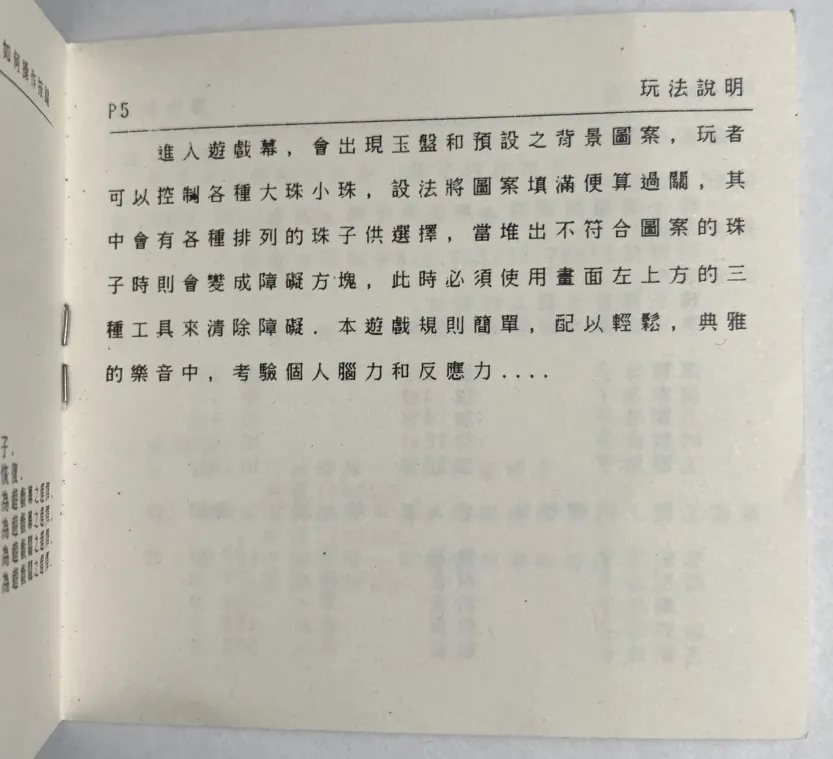 如何操作按鍵
P5
玩法說明
進入遊戲幕，會出現玉盤和預設之背景圖案，玩者
可以控制各種大珠小珠，設法將圖案填滿便算過關，其
中會有各種排列的珠子供選擇，當堆出不符合圖案的珠
子時則會變成障礙方塊，此時必須使用畫面左上方的三
種工具來清除障礙．本遊戲規則簡單，配以輕鬆，典雅
的樂音中，考驗個人腦力和反應力....
子．
恢復．